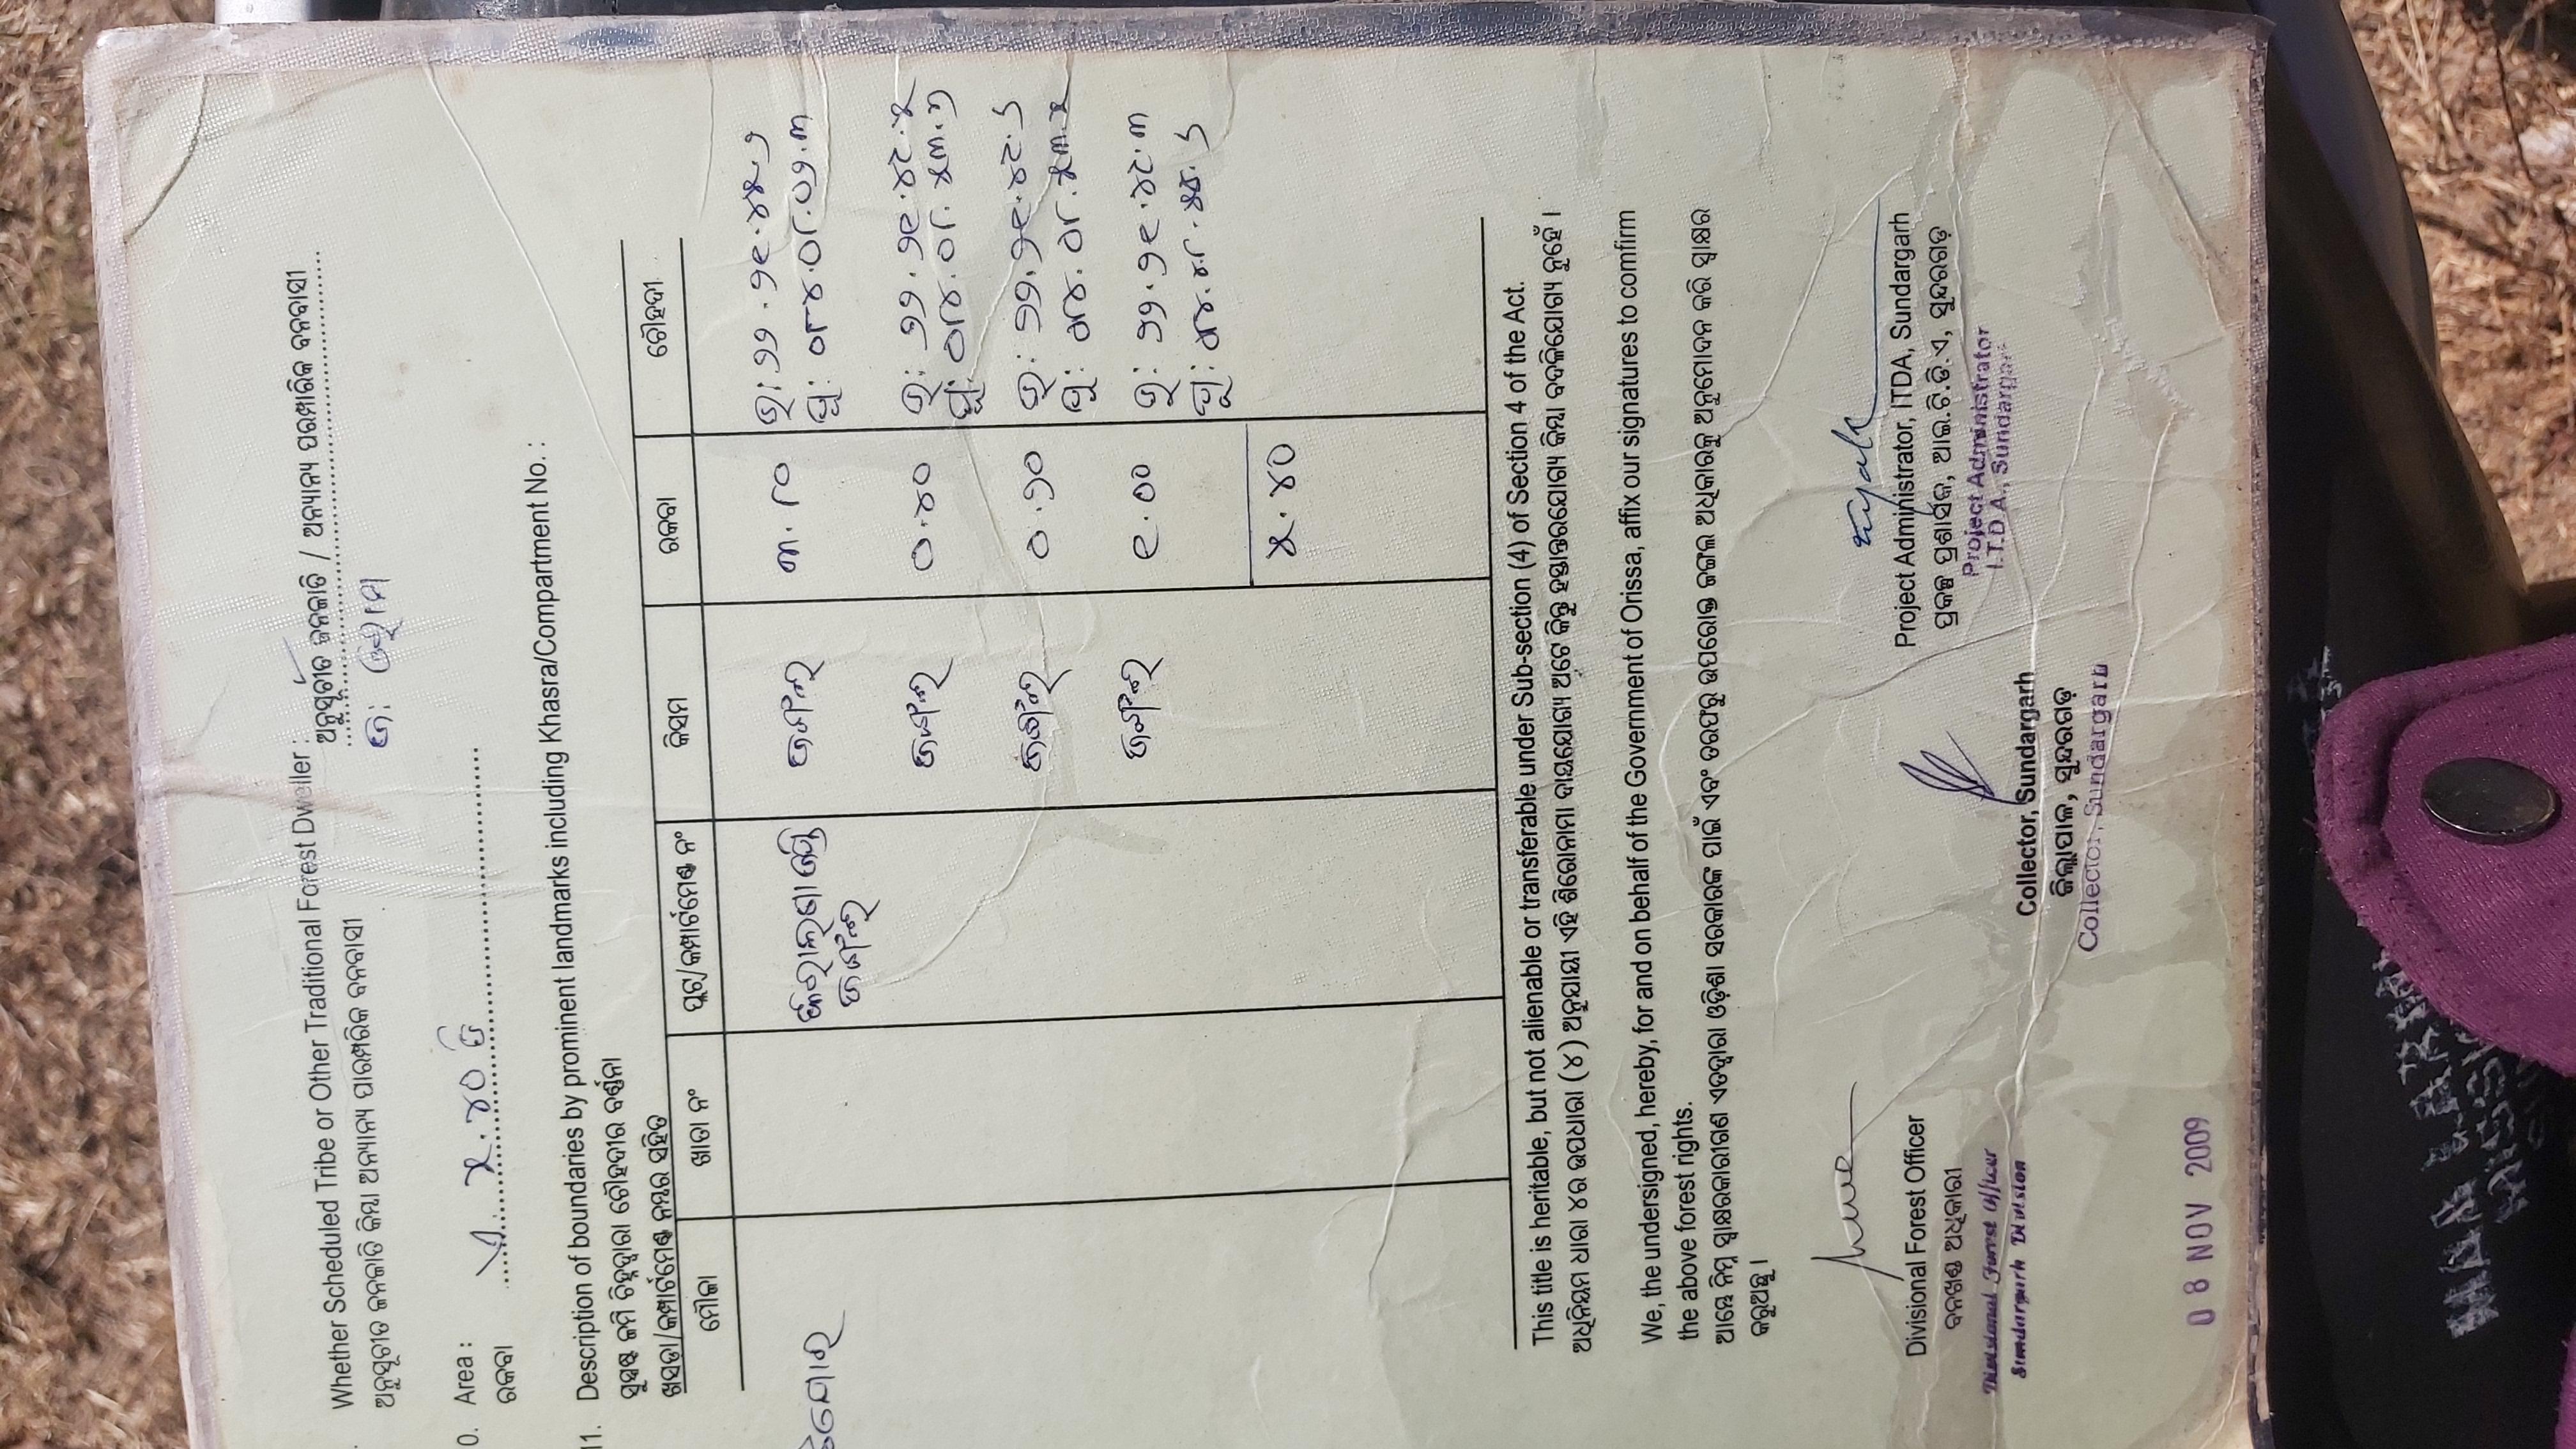 Whether Scheduled Tribe or Other Traditional Forest Dweller : ଅନୁସୂଚୀତ ଜନଜାତି / ଅନ୍ୟାନ୍ୟ ପାରମ୍ପରିକ ବନବାସୀ
ଅନୁସୂଚୀତ ଜନଜାତି କିମ୍ବା ଅନ୍ୟାନ୍ୟ ପାରମ୍ପରିକ ବନବାସୀ
0. Area : ୫.୪୦ ଡି
ରକବା
11. Description of boundaries by prominent landmarks including Khasra/Compartment No. :
ସୁସ୍ପଷ୍ଟ ଜମି ଚିହ୍ନଦ୍ୱାରା ଚୌହଦୀର ବର୍ଣ୍ଣନା
ଖସଡା/କମ୍ପାର୍ଟମେଣ୍ଟ ନମ୍ବର ସହିତ
ମୌଜା ଖାତା ନଂ ପ୍ଲଟ/କମ୍ପାର୍ଟମେଣ୍ଟ ନଂ କିସମ ରକବା ଚୌହଦୀ
ଜଙ୍ଗଲ ୩.୮୦ ଉ: ୨୨.୨୧.୪୫.୨
ଜଙ୍ଗଲ ପୂ: ୦୮୪.୦୮.୦୨.୩
ଜଙ୍ଗଲ ୦.୪୦ ଉ: ୨୨.୨୧.୪୮.୫
ପୂ: ୦୮୪.୦୮.୫୩.୨
ଜଙ୍ଗଲ ୦.୨୦ ଉ: ୨୨.୨୧.୪୮.୬
ପୂ: ୦୮୪.୦୮.୫୩.୫
ଜଙ୍ଗଲ ୧.୦୦ ଉ: ୨୨.୨୧.୪୮.୩
୫.୪୦
This title is heritable, but not alienable or transferable under Sub-section (4) of Section 4 of the Act.
ଅଧିନିୟମ ଧାରା ୪ର ଉପଧାରା (୪) ଅନୁଯାୟୀ ଏହି ଶିରୋନାମା ଦାୟଯୋଗ୍ୟ ଅଟେ କିନ୍ତୁ ହସ୍ତାନ୍ତରଯୋଗ୍ୟ କିମ୍ବା ବଦଳିଯୋଗ୍ୟ ନୁହେଁ ।
We, the undersigned, hereby, for and on behalf of the Government of Orissa, affix our signatures to comfirm
the above forest rights.
ଆମ୍ଭେ ନିମ୍ନ ସ୍ୱାକ୍ଷରକାରୀଗଣ ଏତଦ୍ୱାରା ଓଡ଼ିଶା ସରକାରଙ୍କ ପାଇଁ ଏବଂ ତରଫରୁ ଉପରୋକ୍ତ ଜଙ୍ଗଲ ଅଧିକାରକୁ ଅନୁମୋଦନ କରି ସ୍ୱାକ୍ଷର
କରୁଅଛୁ ।
Divisional Forest Officer
ବନଖଣ୍ଡ ଅଧିକାରୀ
Divisional Forest Officer
Sundargarh Division
Collector, Sundargarh
ଜିଲ୍ଲାପାଳ, ସୁନ୍ଦରଗଡ଼
Collector, Sundargarh
Project Administrator, ITDA, Sundargarh
ପ୍ରକଳ୍ପ ପ୍ରଶାସକ, ଆଇ.ଟି.ଡି.ଏ, ସୁନ୍ଦରଗଡ଼
Project Administrator
I.T.D.A., Sundargarh
08 NOV 2009